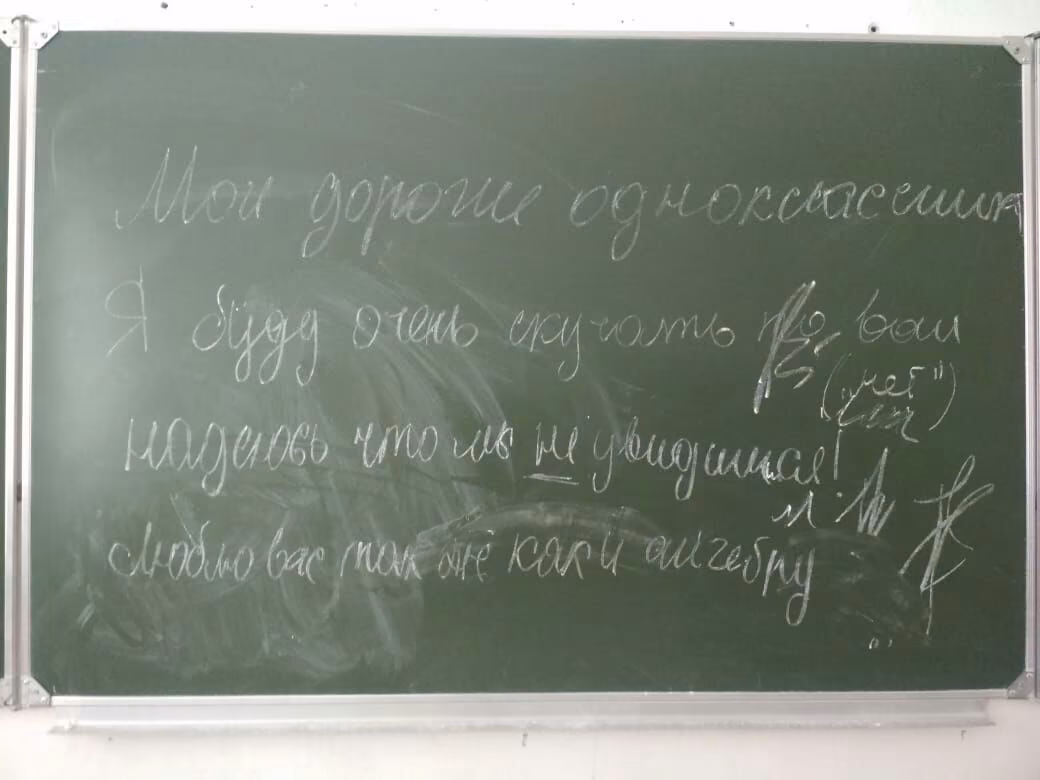 Мои дорогие одноклассники
Я буду очень скучать по вам
("нет")
надеюсь что мы не увидимся!
люблю вас так же как и алгебру